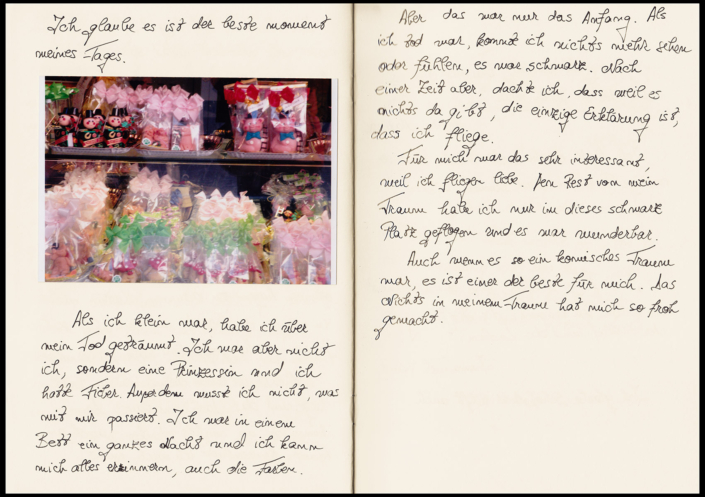 Ich glaube es ist der beste moment
meines Tages.
Als ich klein war, habe ich über
mein Tod geträumt. Ich war aber nicht
ich, sondern eine Prinzessin und ich
hatte Fiber. Außerdem wusste ich nicht, was
mit mir passiert. Ich war in einem
Bett ein ganzes Nacht und ich kann
mich alles erinnern, auch die Farben.
Aber das war nur das Anfang. Als
ich tod war, konnte ich nichts mehr sehen
oder fühlen, es war schwarz. Nach
einer Zeit aber, dachte ich, dass weil es
nichts da gibt, die einzige Erklärung ist,
dass ich fliege.
Für mich war das sehr interessant,
weil ich fliegen liebe. Den Rest von mein
Traum habe ich nur in dieses schwarz
Platz geflogen und es war wunderbar.
Auch wenn es so ein komisches Traum
war, es ist einer der beste für mich. Das
Nichts in meinem Traum hat mich so froh
gemacht.